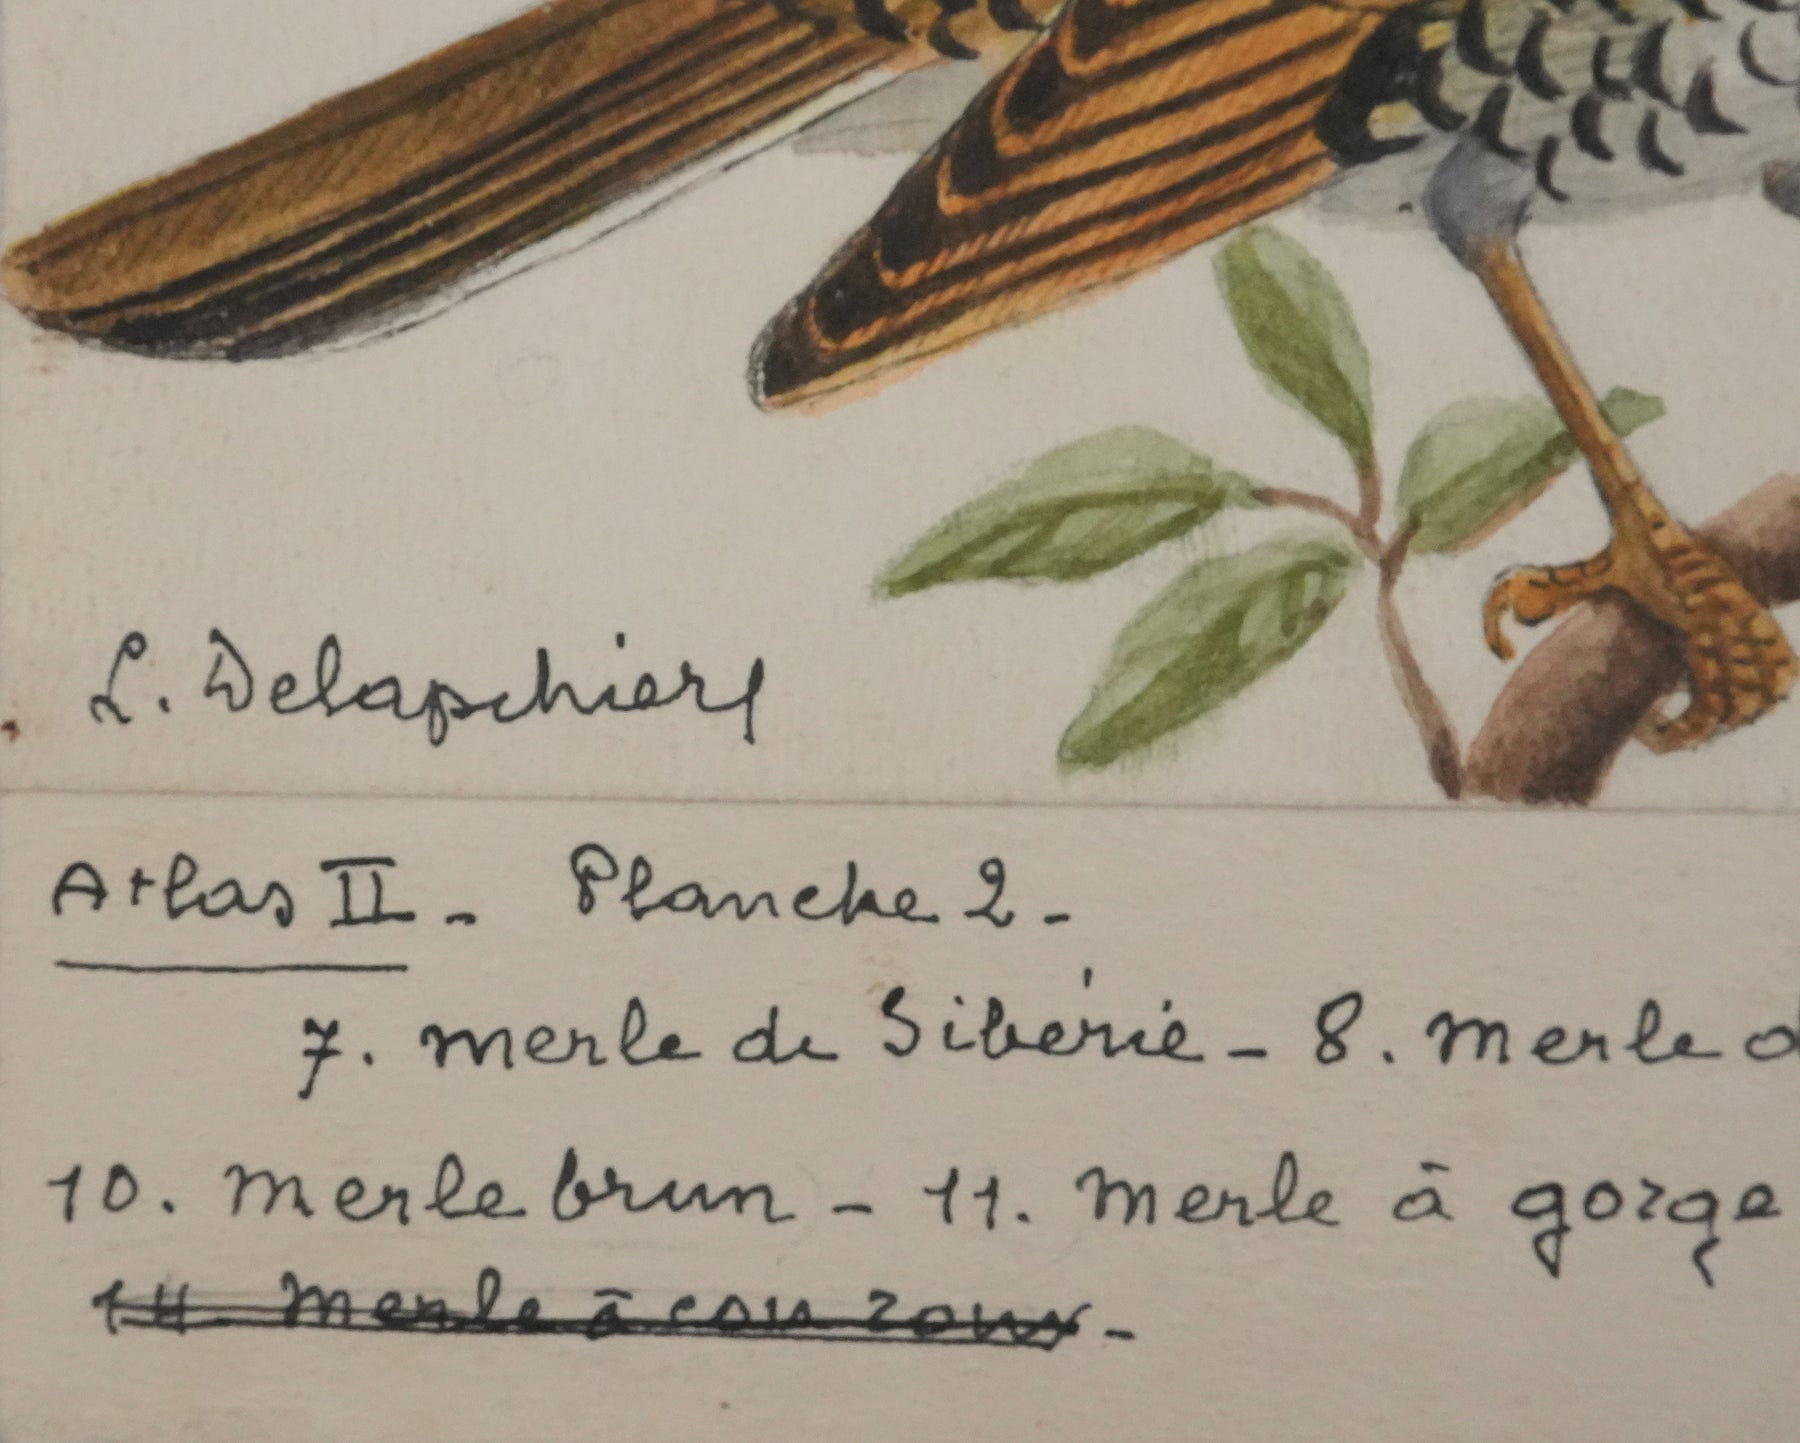 L. Delapchier
Atlas II - Planche 2 -
7. Merle de Sibérie - 8. Merle d
10. Merle brun - 11. Merle à gorge
14. Merle à cou roux -